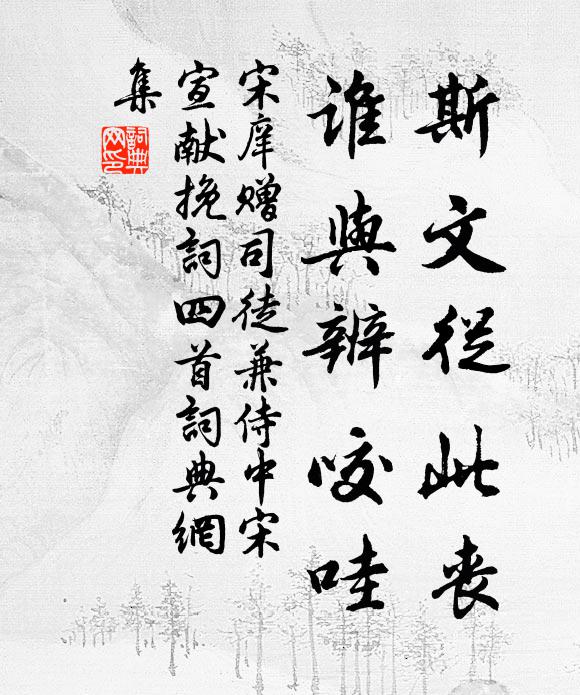 斯文從此喪
誰與辨咬哇
宋庠贈司徒兼侍中宋
宣献挽詞四首詞典網
集
詞典網印